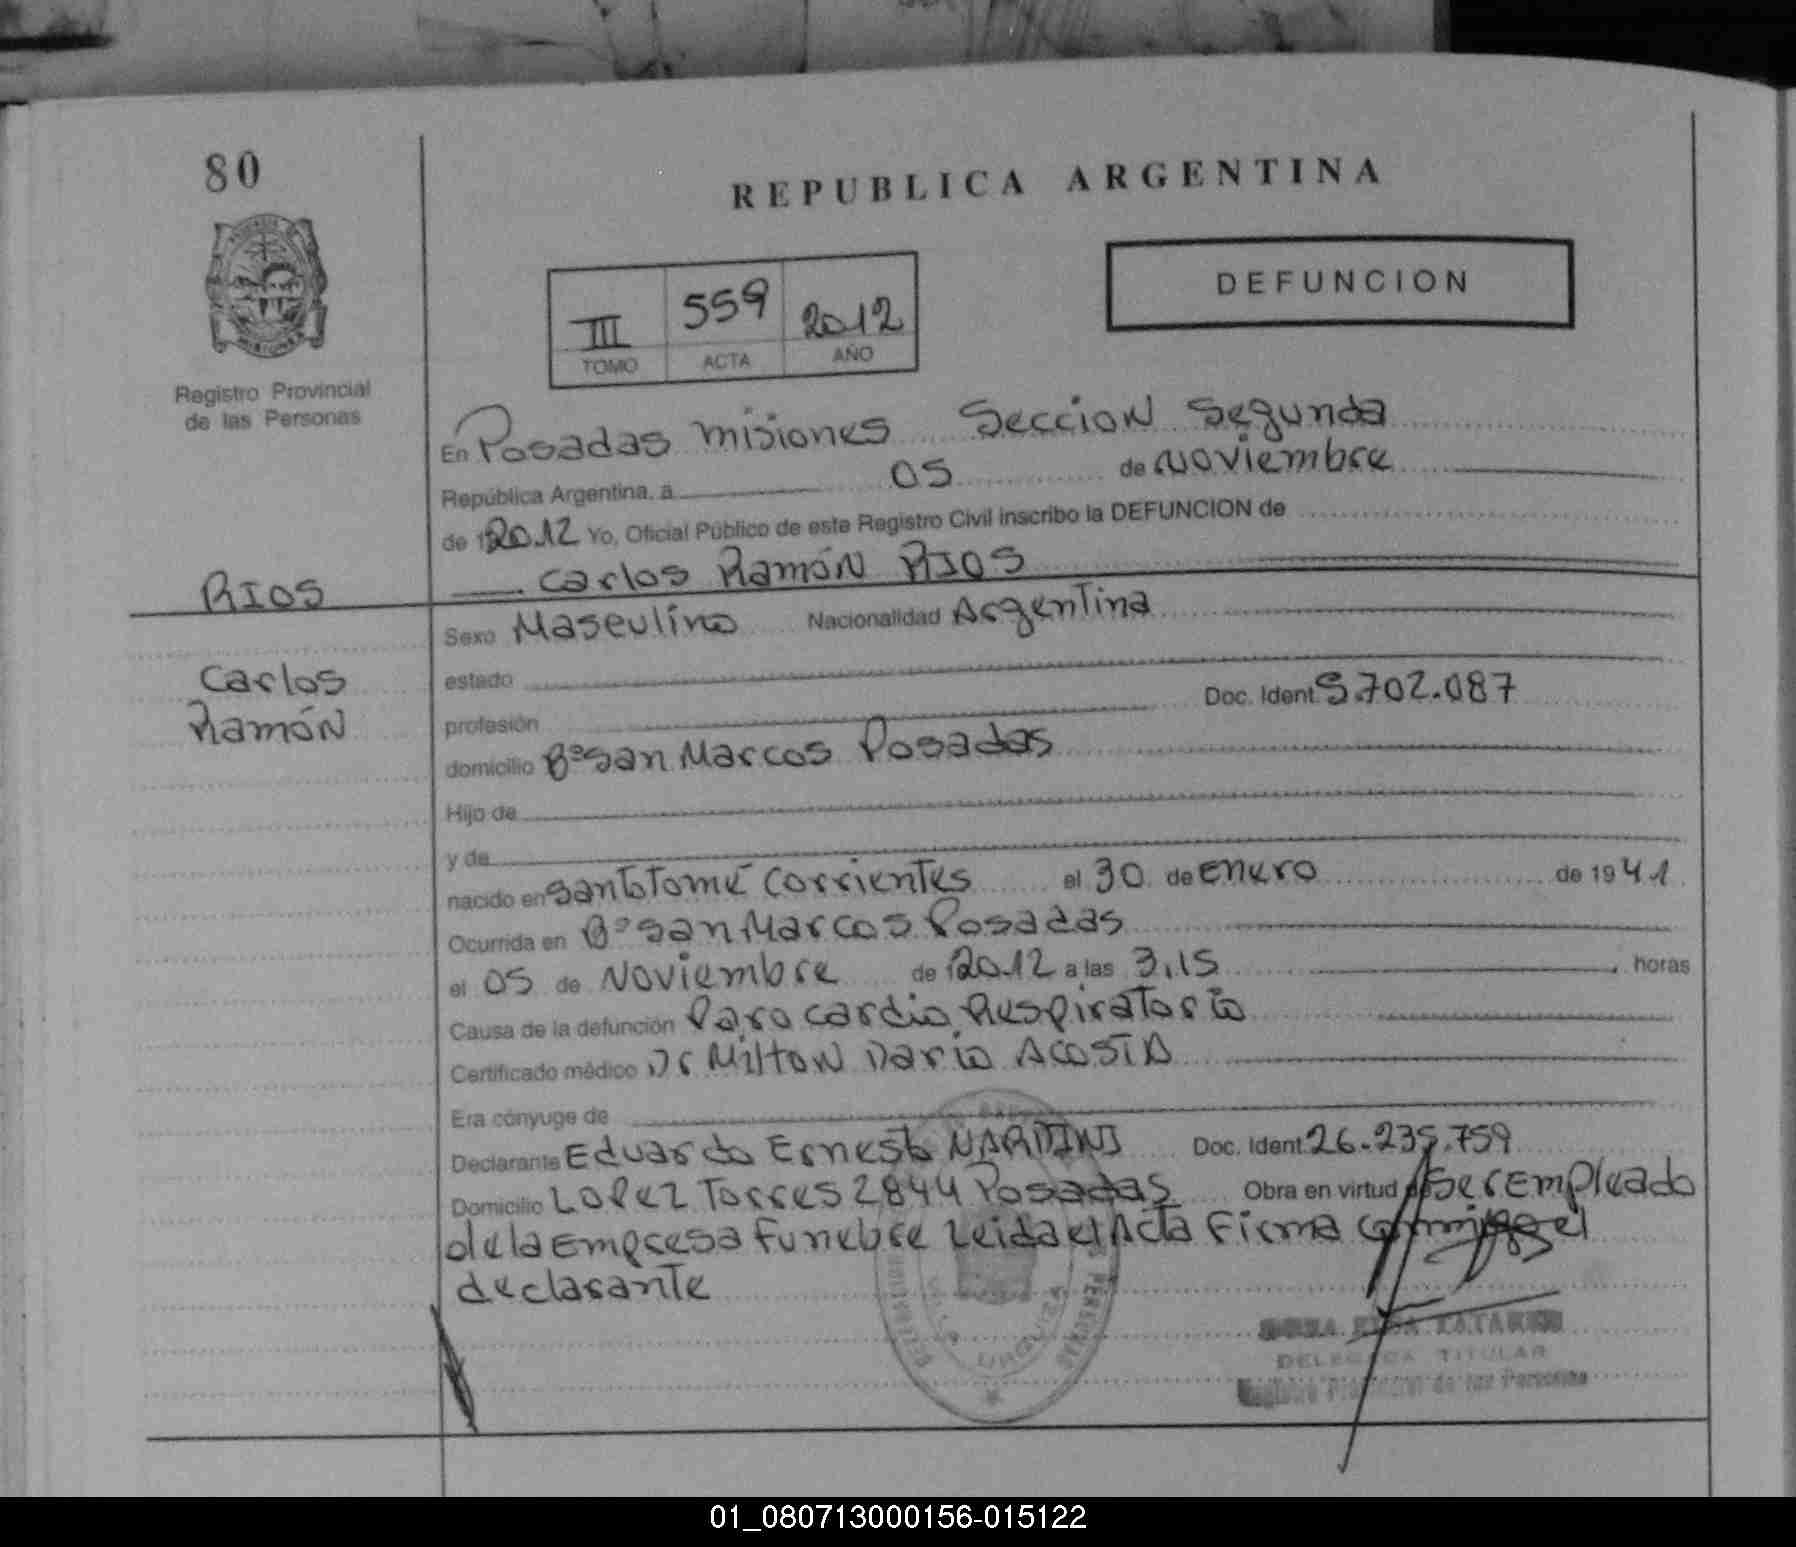 80
REPUBLICA ARGENTINA
DEFUNCION
III 559 2012
TOMO ACTA AÑO
MISIONES
Registro Provincial
de las Personas
En Posadas misiones Seccion Segunda
República Argentina, a 05 de Noviembre
de 2012 Yo, Oficial Público de este Registro Civil inscribo la DEFUNCION de
Carlos Ramón RIOS
RIOS
Carlos
Ramón
Sexo Masculino Nacionalidad Argentina
estado
profesión Doc. Ident. 5.702.087
domicilio Bº San Marcos Posadas
Hijo de
y de
nacido en Santo Tomé Corrientes el 30 de Enero de 1941
Ocurrida en Bº San Marcos Posadas
el 05 de Noviembre de 2012 a las 3,15 horas
Causa de la defunción Paro cardio Respiratorio
Certificado médico Dr Milton Dario ACOSTA
Era cónyuge de
Declarante Eduardo Ernesto NARDINI Doc. Ident. 26.235.759
Domicilio LOPEZ Torres 2844 Posadas Obra en virtud de Ser Empleado
de la Empresa Funebre Leida el Acta Firma conmigo el
declarante
VILLA URQUIZA
PERSONAS
DELEGADA TITULAR
Registro Provincial de las Personas
01_080713000156-015122